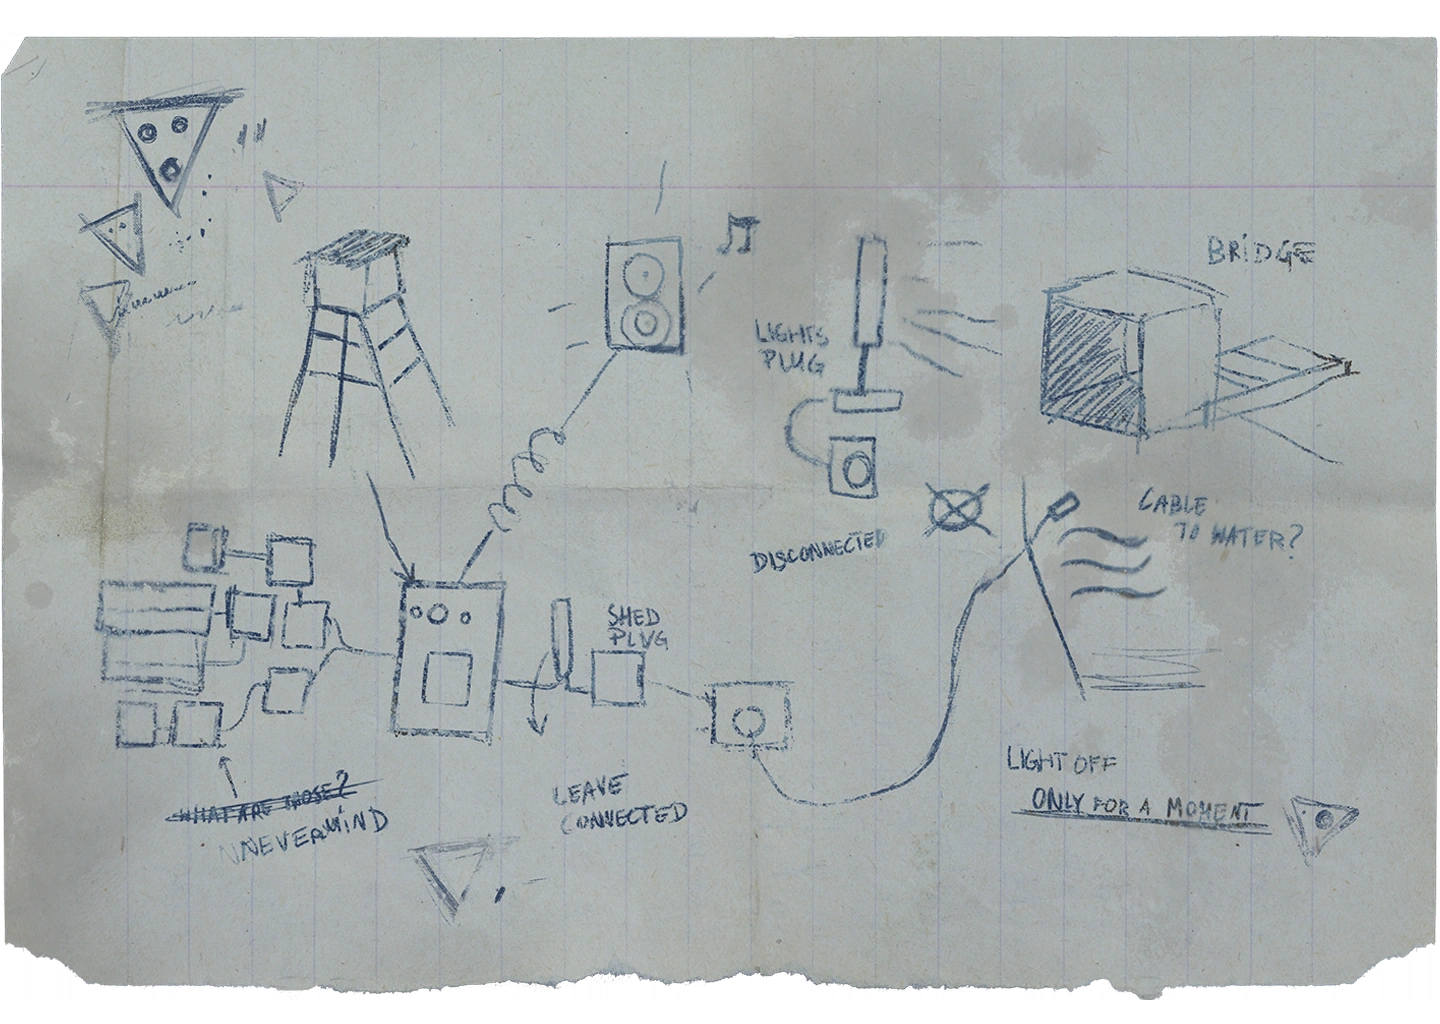 BRIDGE
LIGHTS
PLUG
CABLE
TO WATER?
DISCONNECTED
SHED
PLUG
LIGHT OFF
ONLY FOR A MOMENT
WHAT ARE THOSE?
NNEVERMIND
LEAVE
CONNECTED